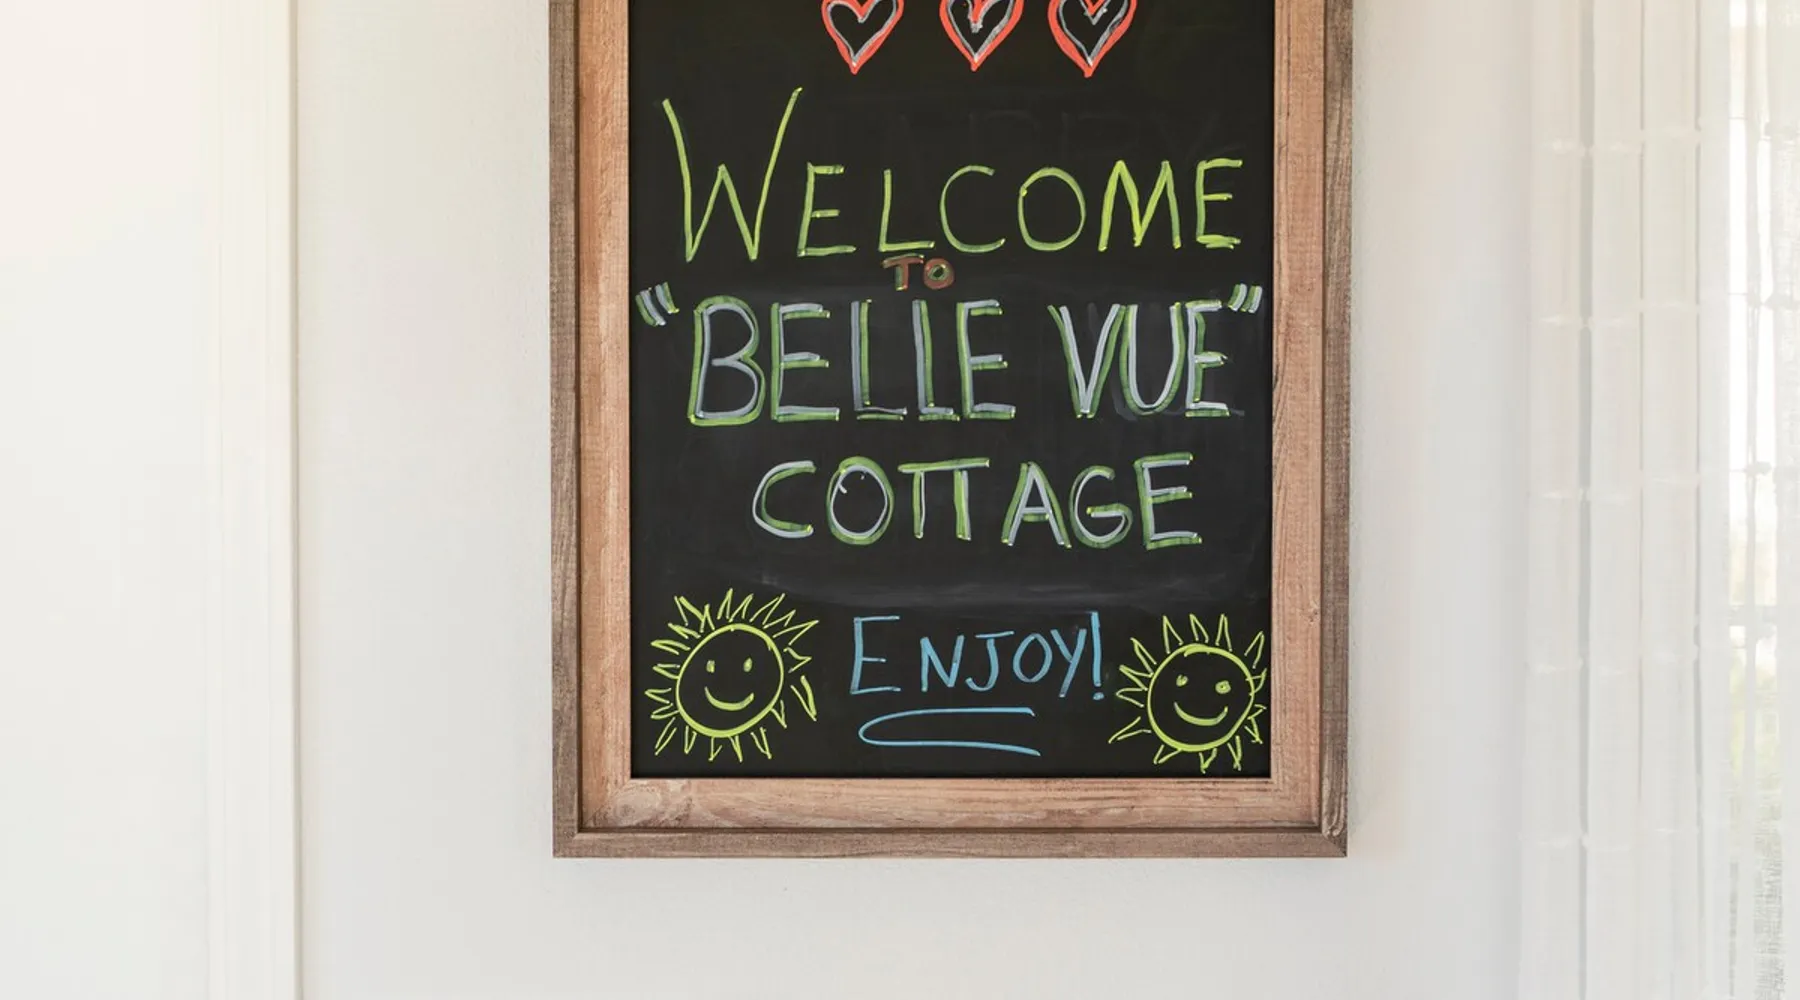 WELCOME
TO
"BELLE VUE"
COTTAGE
ENJOY!